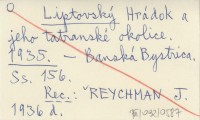 O Liptovský Hrádok a
jeho tatranské okolice.
1935. – Banská Bystrica.
Ss. 156.
Rec.: REYCHMAN J.
1936 d.